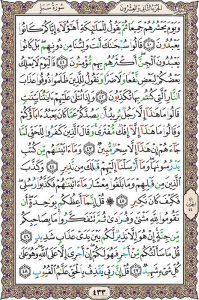 سُورَةُ سَبَإٍ الجزء الثاني والعشرون
وَيَوْمَ يَحْشُرُهُمْ جَمِيعًا ثُمَّ يَقُولُ لِلْمَلَٰٓئِكَةِ أَهَٰٓؤُلَآءِ إِيَّاكُمْ كَانُوا۟
يَعْبُدُونَ ﴿٤٠﴾ قَالُوا۟ سُبْحَٰنَكَ أَنتَ وَلِيُّنَا مِن دُونِهِم بَلْ كَانُوا۟
يَعْبُدُونَ ٱلْجِنَّ أَكْثَرُهُم بِهِم مُّؤْمِنُونَ ﴿٤١﴾ فَٱلْيَوْمَ لَا يَمْلِكُ
بَعْضُكُمْ لِبَعْضٍ نَّفْعًا وَلَا ضَرًّا وَنَقُولُ لِلَّذِينَ ظَلَمُوا۟ ذُوقُوا۟ عَذَابَ
ٱلنَّارِ ٱلَّتِى كُنتُم بِهَا تُكَذِّبُونَ ﴿٤٢﴾ وَإِذَا تُتْلَىٰ عَلَيْهِمْ ءَايَٰتُنَا بَيِّنَٰتٍ
قَالُوا۟ مَا هَٰذَآ إِلَّا رَجُلٌ يُرِيدُ أَن يَصُدَّكُمْ عَمَّا كَانَ يَعْبُدُ ءَابَآؤُكُمْ
وَقَالُوا۟ مَا هَٰذَآ إِلَّآ إِفْكٌ مُّفْتَرًى وَقَالَ ٱلَّذِينَ كَفَرُوا۟ لِلْحَقِّ لَمَّا
جَآءَهُمْ إِنْ هَٰذَآ إِلَّا سِحْرٌ مُّبِينٌ ﴿٤٣﴾ وَمَآ ءَاتَيْنَٰهُم مِّن كُتُبٍ
يَدْرُسُونَهَا وَمَآ أَرْسَلْنَآ إِلَيْهِمْ قَبْلَكَ مِن نَّذِيرٍ ﴿٤٤﴾ وَكَذَّبَ ٱلَّذِينَ
مِن قَبْلِهِمْ وَمَا بَلَغُوا۟ مِعْشَارَ مَآ ءَاتَيْنَٰهُمْ فَكَذَّبُوا۟ رُسُلِى
فَكَيْفَ كَانَ نَكِيرِ ﴿٤٥﴾ ۞ قُلْ إِنَّمَآ أَعِظُكُم بِوَٰحِدَةٍ أَن
تَقُومُوا۟ لِلَّهِ مَثْنَىٰ وَفُرَٰدَىٰ ثُمَّ تَتَفَكَّرُوا۟ مَا بِصَاحِبِكُم
مِّن جِنَّةٍ إِنْ هُوَ إِلَّا نَذِيرٌ لَّكُم بَيْنَ يَدَىْ عَذَابٍ شَدِيدٍ ﴿٤٦﴾
قُلْ مَا سَأَلْتُكُم مِّنْ أَجْرٍ فَهُوَ لَكُمْ إِنْ أَجْرِىَ إِلَّا عَلَى ٱللَّهِ وَهُوَ عَلَىٰ
كُلِّ شَىْءٍ شَهِيدٌ ﴿٤٧﴾ قُلْ إِنَّ رَبِّى يَقْذِفُ بِٱلْحَقِّ عَلَّٰمُ ٱلْغُيُوبِ ﴿٤٨﴾
٤٣٣